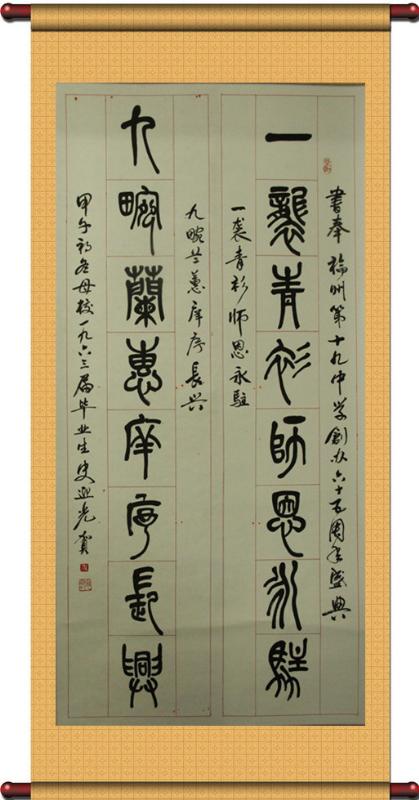 书奉福州第十九中学創办六十五周年盛典
一襲青衫師恩永駐
一袭青衫师恩永駐
九畹兰蕙庠序长兴
九畹蘭蕙庠序長興
甲午初冬母校一九六三届毕业生史迎光賀